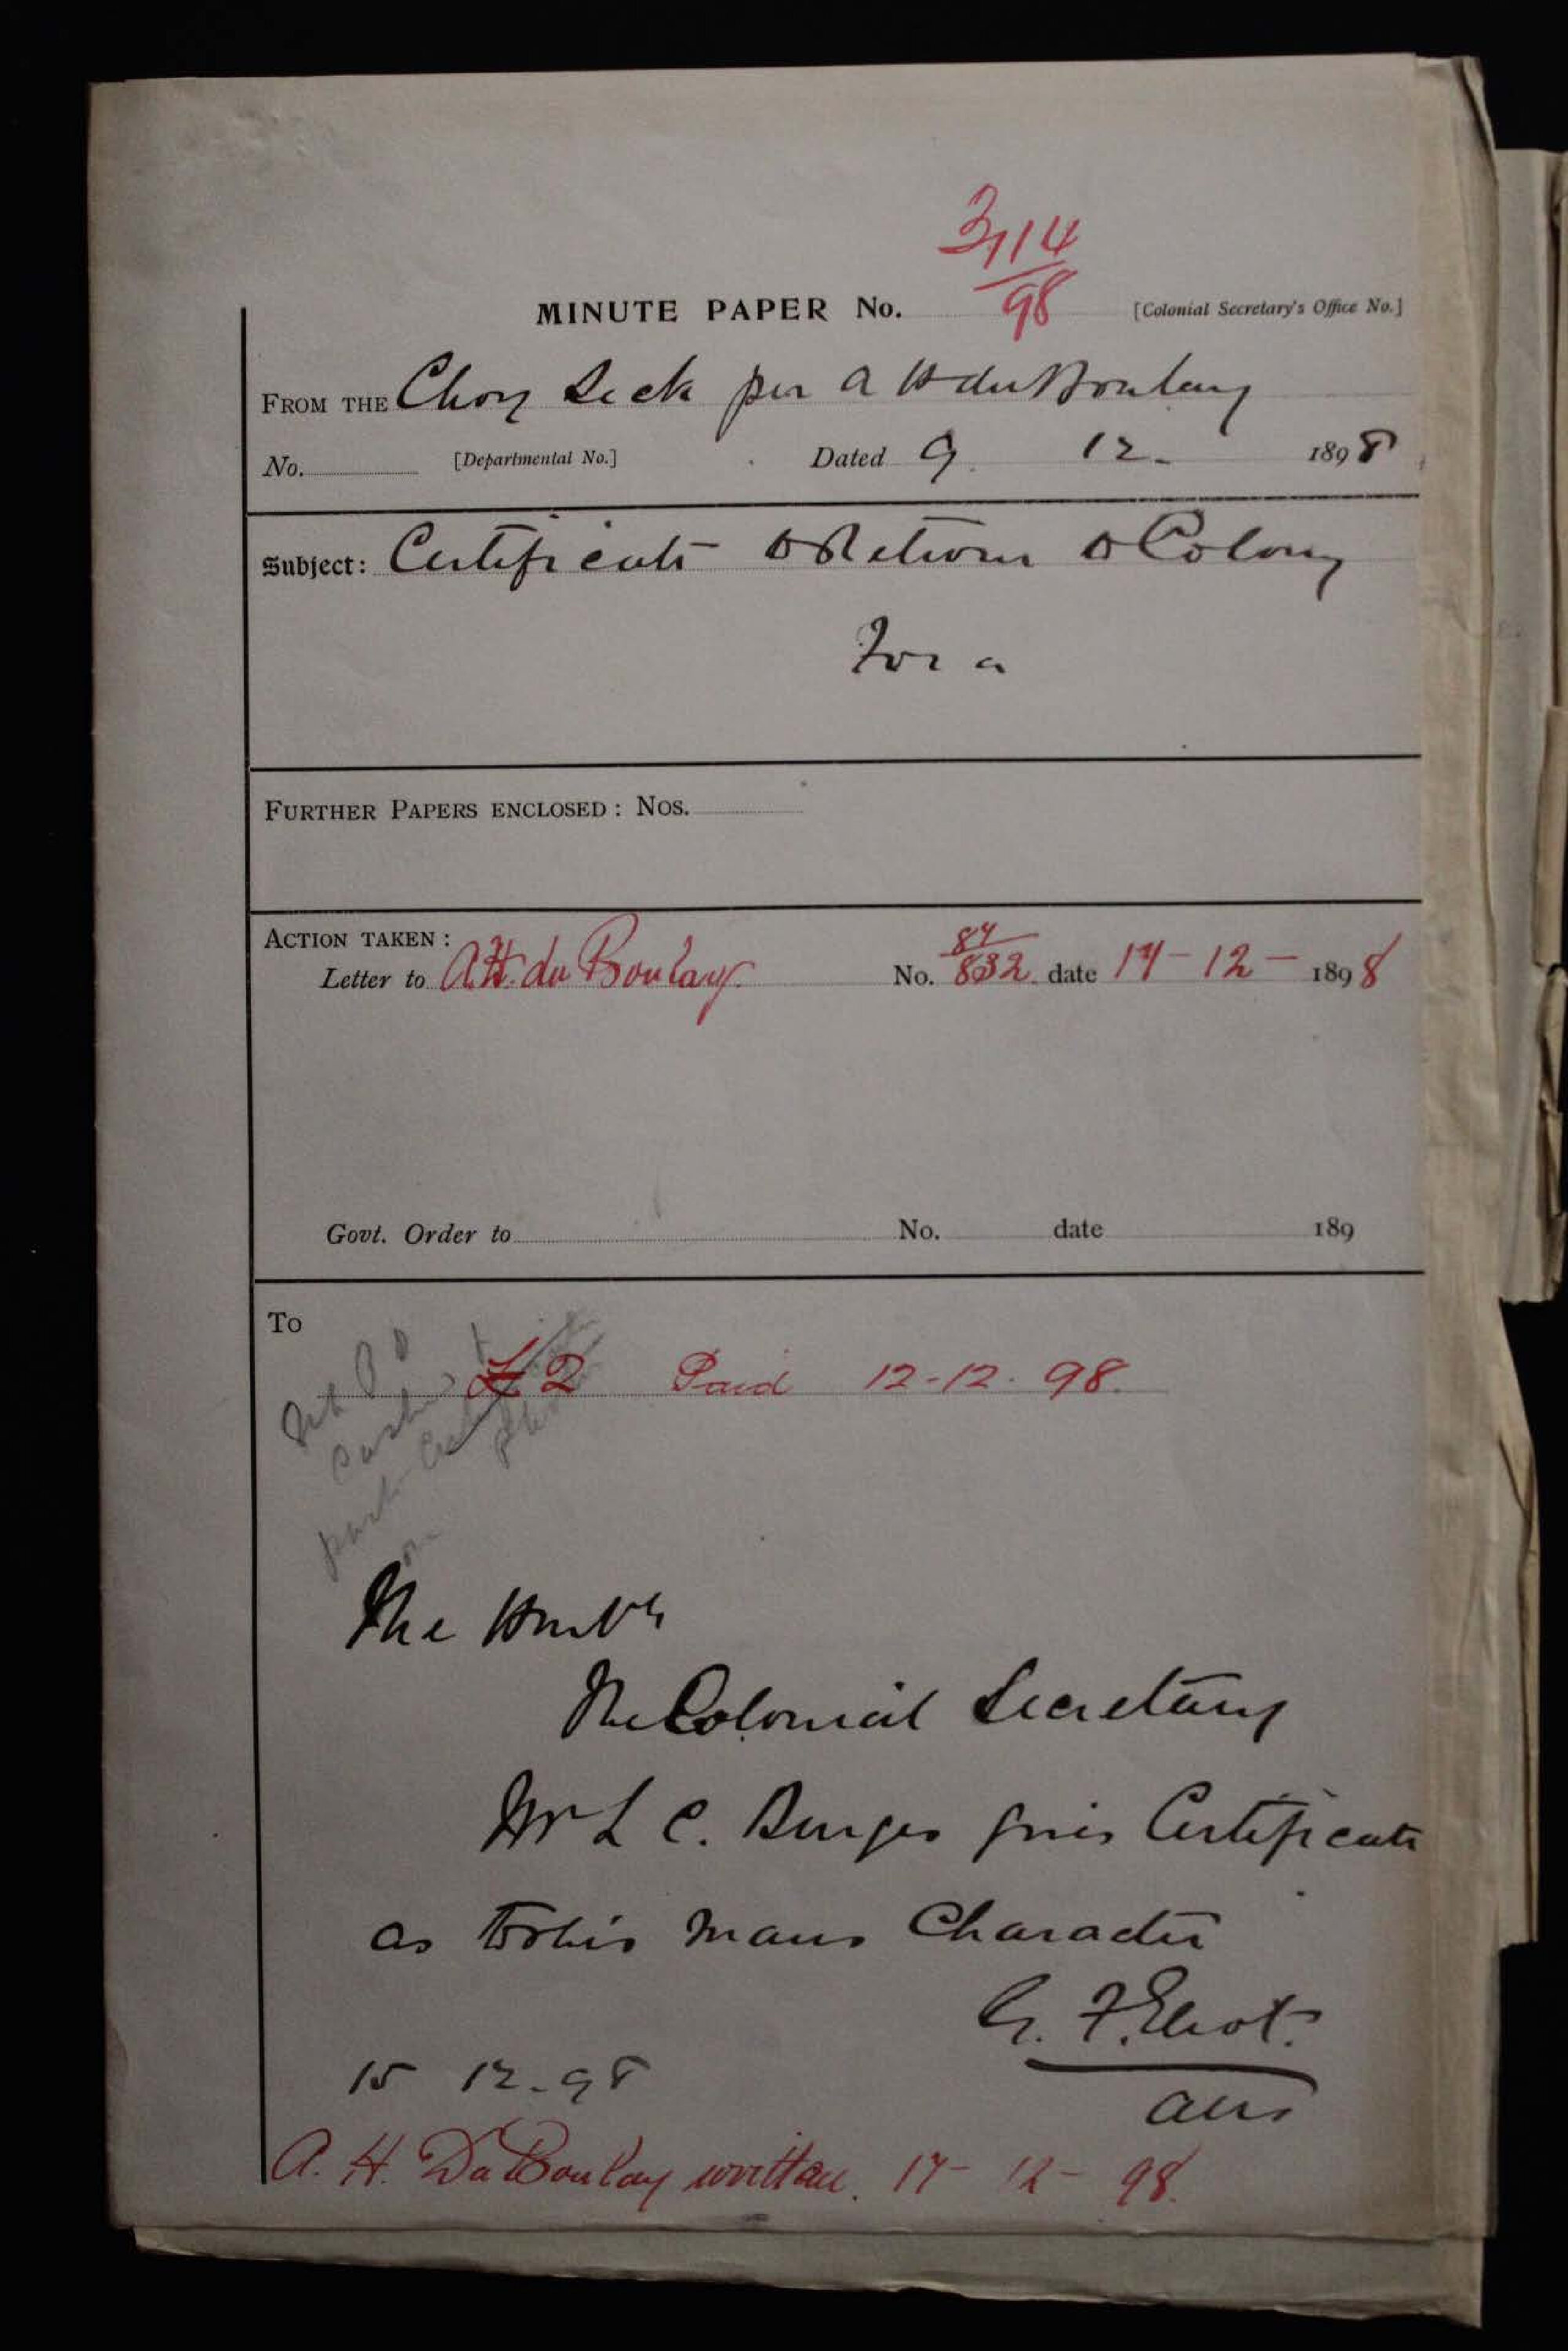 3114/98
MINUTE PAPER No. [Colonial Secretary's Office No.]
FROM THE Choy Seck per A H du Boulay
No. [Departmental No.] Dated 9. 12. 1898
Subject: Certificate to Return to Colony
For a
FURTHER PAPERS ENCLOSED: Nos.
ACTION TAKEN:
Letter to A.H. du Boulay. No. 84/832. date 17-12-1898
Govt. Order to No. date 189
To
£2 Paid 12-12. 98.
The Honble
The Colonial Secretary
Mr L C. Burges gives Certificate
as to this mans Character
G. F. Eliot.
15 12-98
A. H. Du Boulay written. 17-12-98.